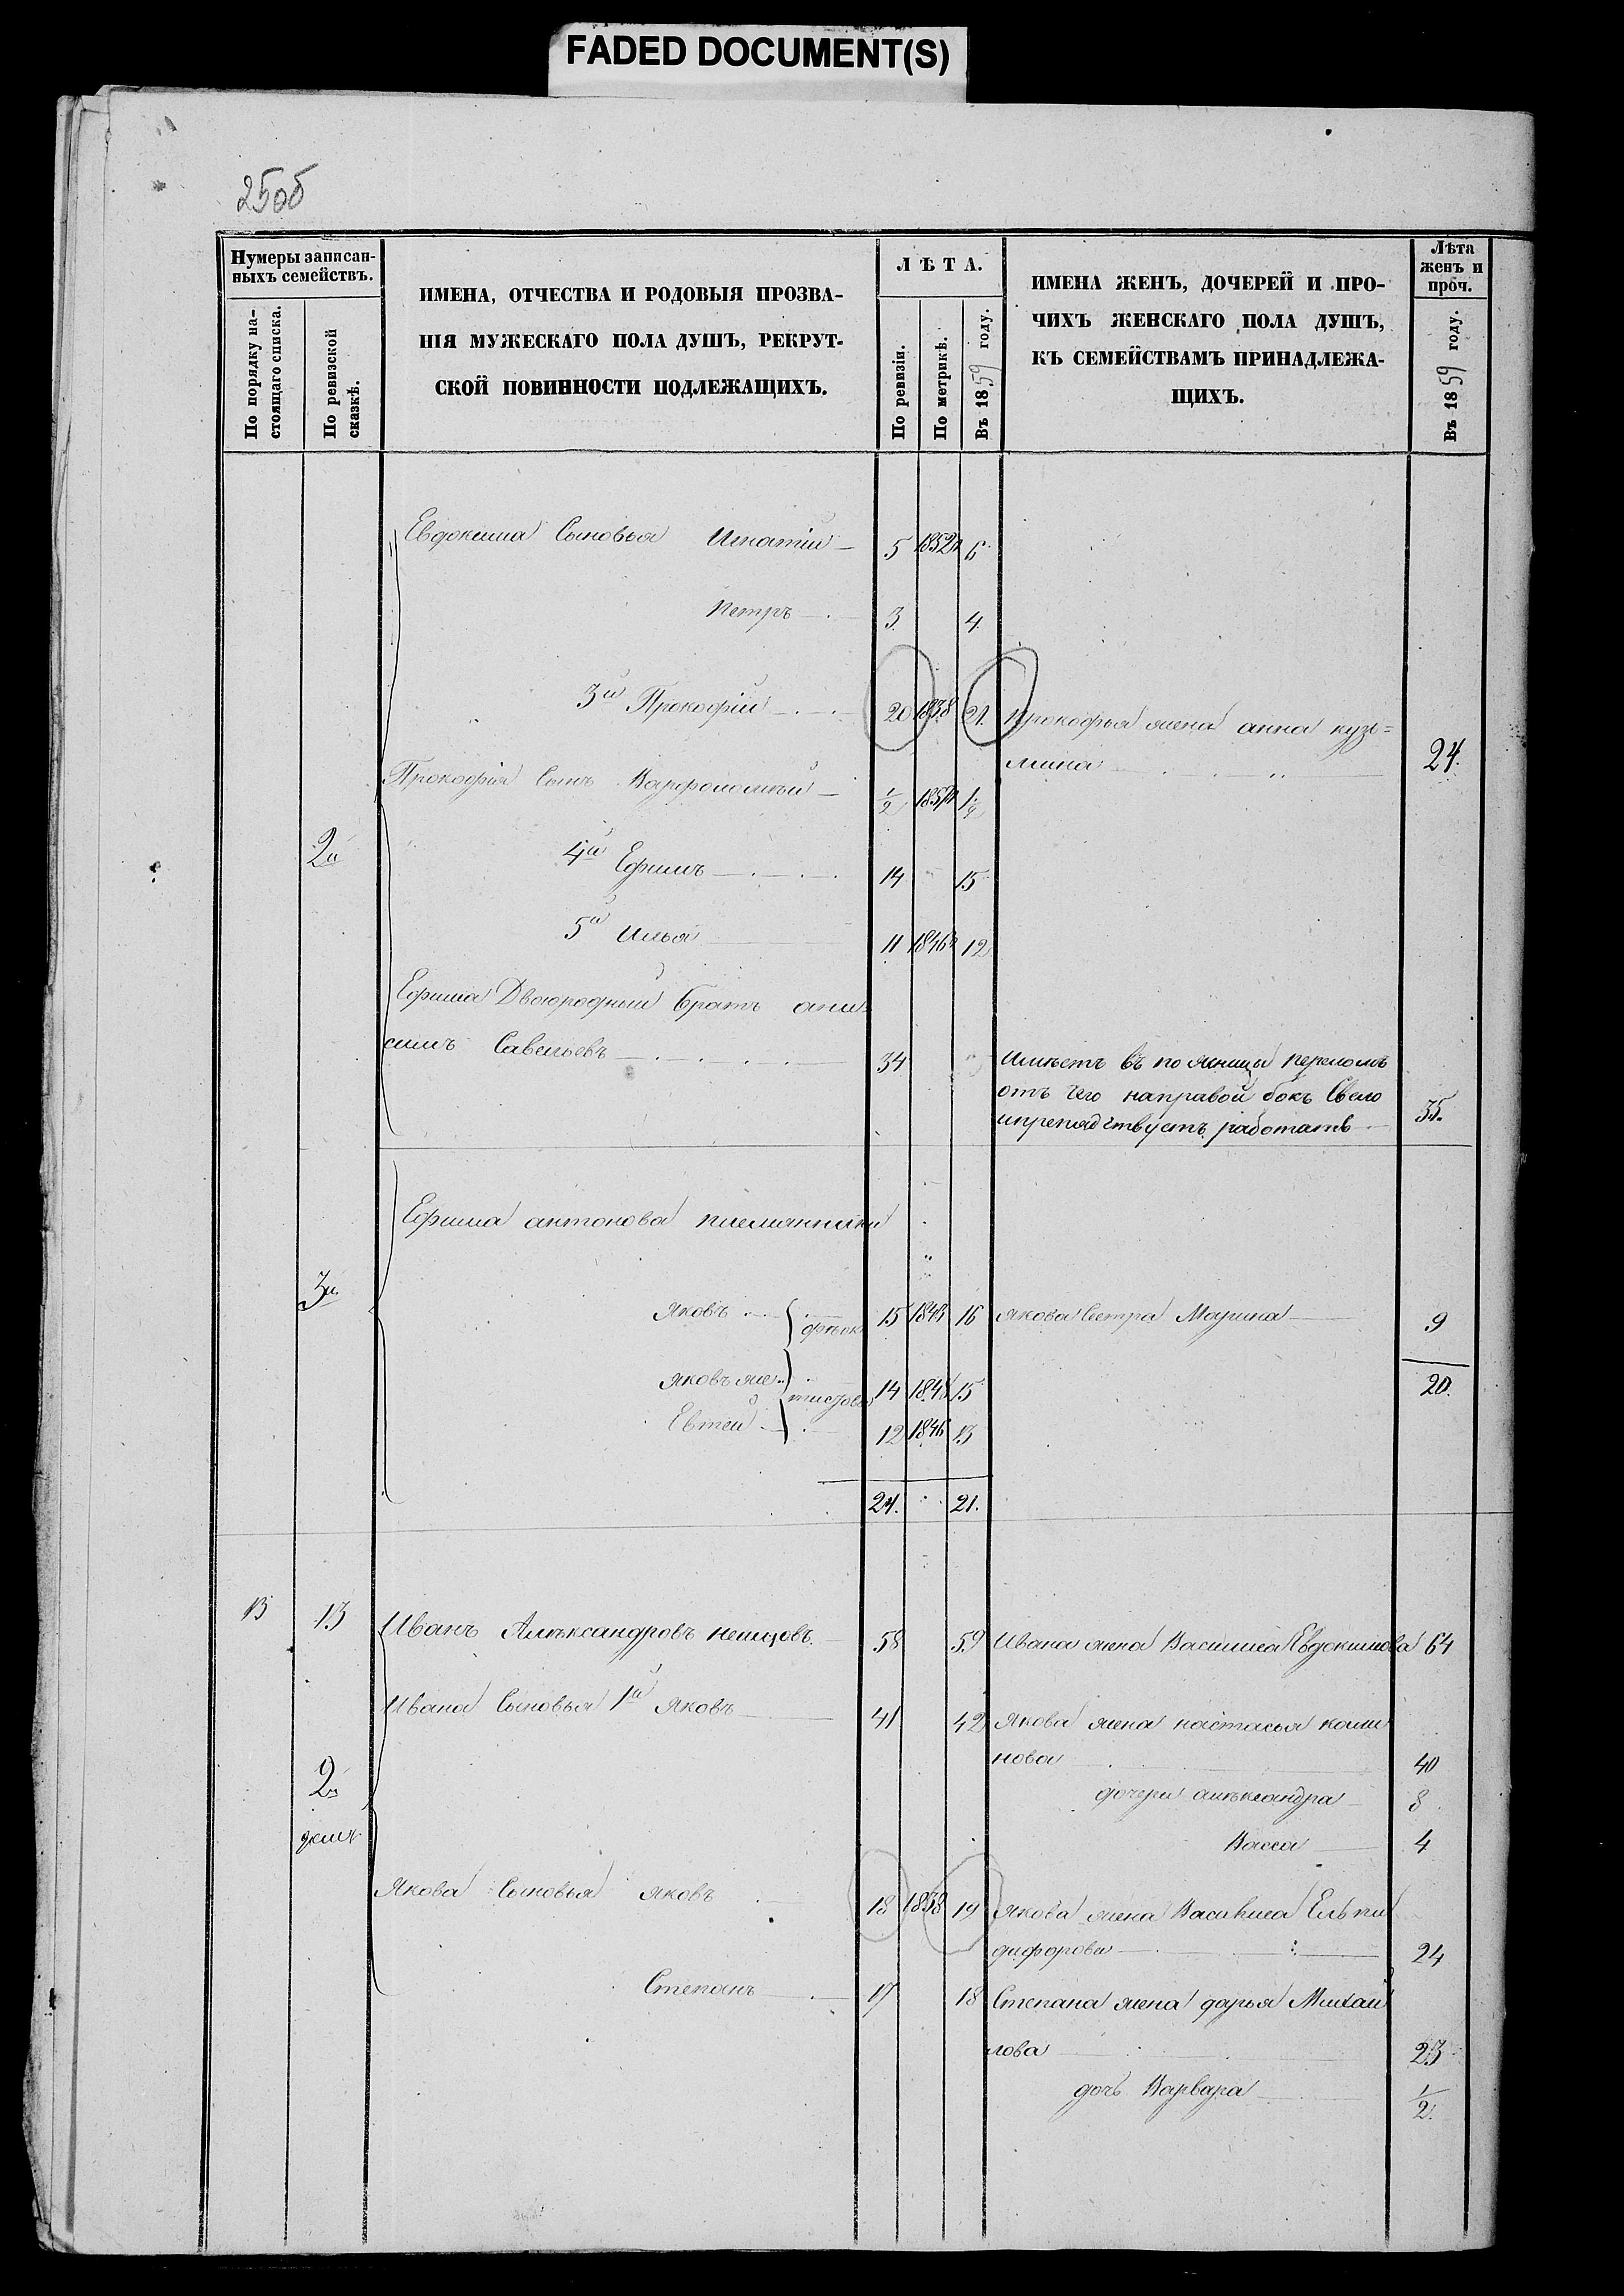 FADED DOCUMENT(S)
25об
Нумеры записан-
ныхъ семействъ.
По порядку на-
стоящаго списка.
По ревизской
сказкѣ.
ИМЕНА, ОТЧЕСТВА И РОДОВЫЯ ПРОЗВА-
НІЯ МУЖЕСКАГО ПОЛА ДУШЪ, РЕКРУТ-
СКОЙ ПОВИННОСТИ ПОДЛЕЖАЩИХЪ.
ЛѢТА.
По ревизіи.
По метрикѣ.
Въ 1859 году.
ИМЕНА ЖЕНЪ, ДОЧЕРЕЙ И ПРО-
ЧИХЪ ЖЕНСКАГО ПОЛА ДУШЪ,
КЪ СЕМЕЙСТВАМЪ ПРИНАДЛЕЖА-
ЩИХЪ.
Лѣта
женъ и
проч.
Въ 1859 году.
Евдокима Сыновья Игнатій 5 1852 6
Петръ 3 4
3й Прокофій 20 1838 21. Прокофья жена анна кузь=
мина 24.
Прокофія Сынъ Варфоломѣй 1/2 1857
2й
4й Ефимъ 14 15
5й Илья 11 1846 12
Ефима Двоюродный братъ они-
симъ Савельевъ 34
Имѣетъ въ пояснице переломъ
отъ чего направой бокъ Свело
ипрепядствуетъ работать 35.
Ефима антонова племянники
3й
Яковъ 15 1843 16 Якова Сестра Марина 9
Яковъ же 14 15
20.
Евтей 12 1846 13
24. 21.
13 13 Иванъ Алѣксандровъ немцовъ 58 59 Ивана жена Василиса Евдокимова 64
Ивана Сыновья 1й Яковъ 41 42 Якова жена настасья
нова 40
2й
дочери алѣксандра 8
Васса 4
Якова Сыновья Яковъ 18 1838 19 Якова жена Василиса Ельпи
дифорова 24
Степанъ 17 18 Степана жена дарья Михай
лова 23
дочь Варвара 1/2.